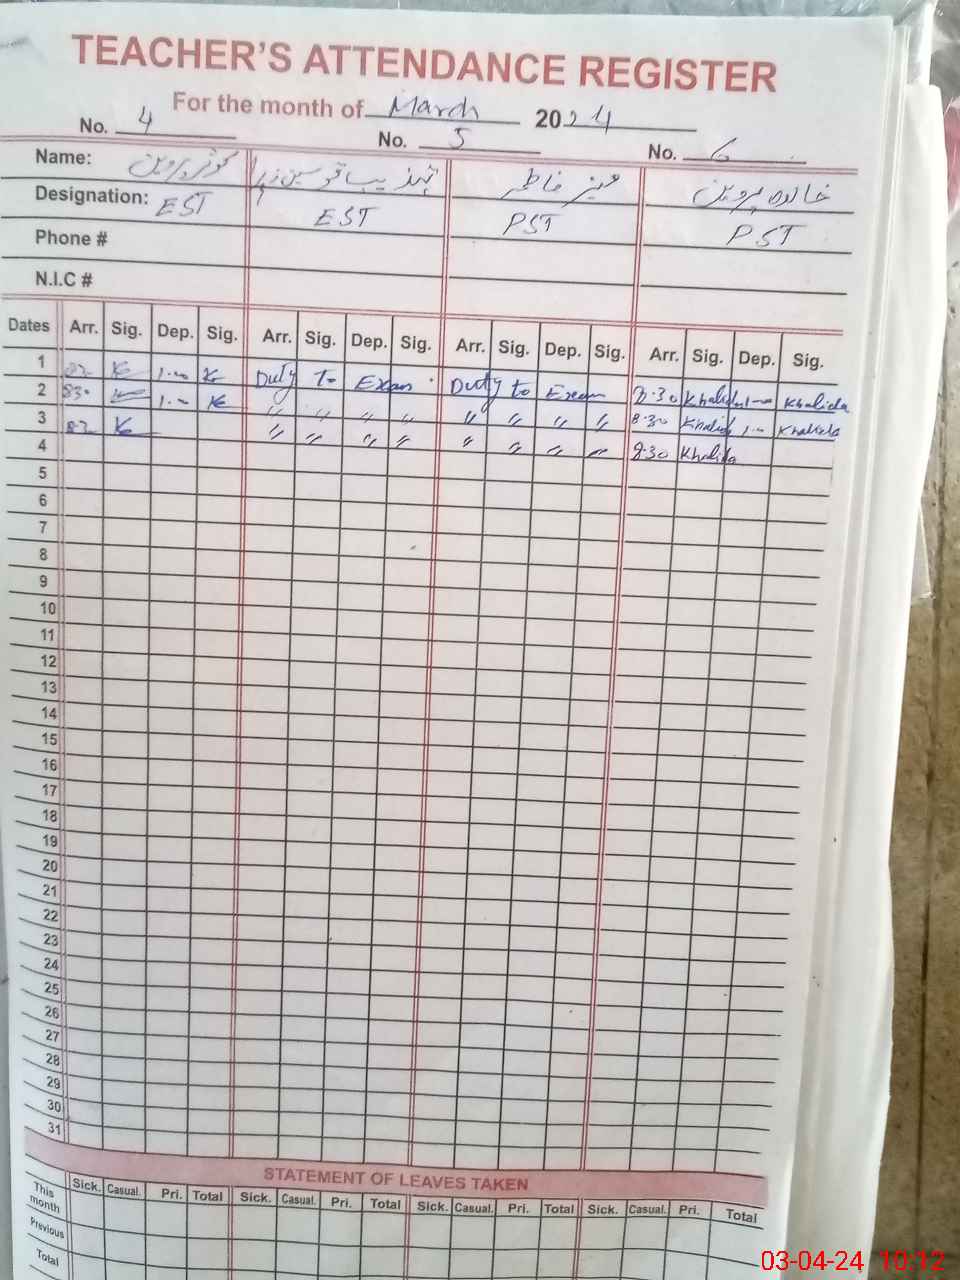 TEACHER'S ATTENDANCE REGISTER
For the month of March 2024
No. 4 No. 5 No. 6
Name: کوثر پروین تہذیب فاطمہ خالدہ پروین
Designation: EST EST PST PST
Phone #
N.I.C #
Dates Arr. Sig. Dep. Sig. Arr. Sig. Dep. Sig. Arr. Sig. Dep. Sig. Arr. Sig. Dep. Sig.
1 Duty To Exam Duty to Exam 8:30 Khalida 1-00 Khalida
2 830 1-00 〃 〃 〃 〃 〃 〃 〃 〃 8:30 Khalida 1-00 Khalida
3 〃 〃 〃 〃 〃 〃 〃 〃 8:30 Khalida
4
5
6
7
8
9
10
11
12
13
14
15
16
17
18
19
20
21
22
23
24
25
26
27
28
29
30
31
STATEMENT OF LEAVES TAKEN
This month Sick. Casual. Pri. Total Sick. Casual. Pri. Total Sick. Casual. Pri. Total Sick. Casual. Pri. Total
Previous
Total
03-04-24 10:12